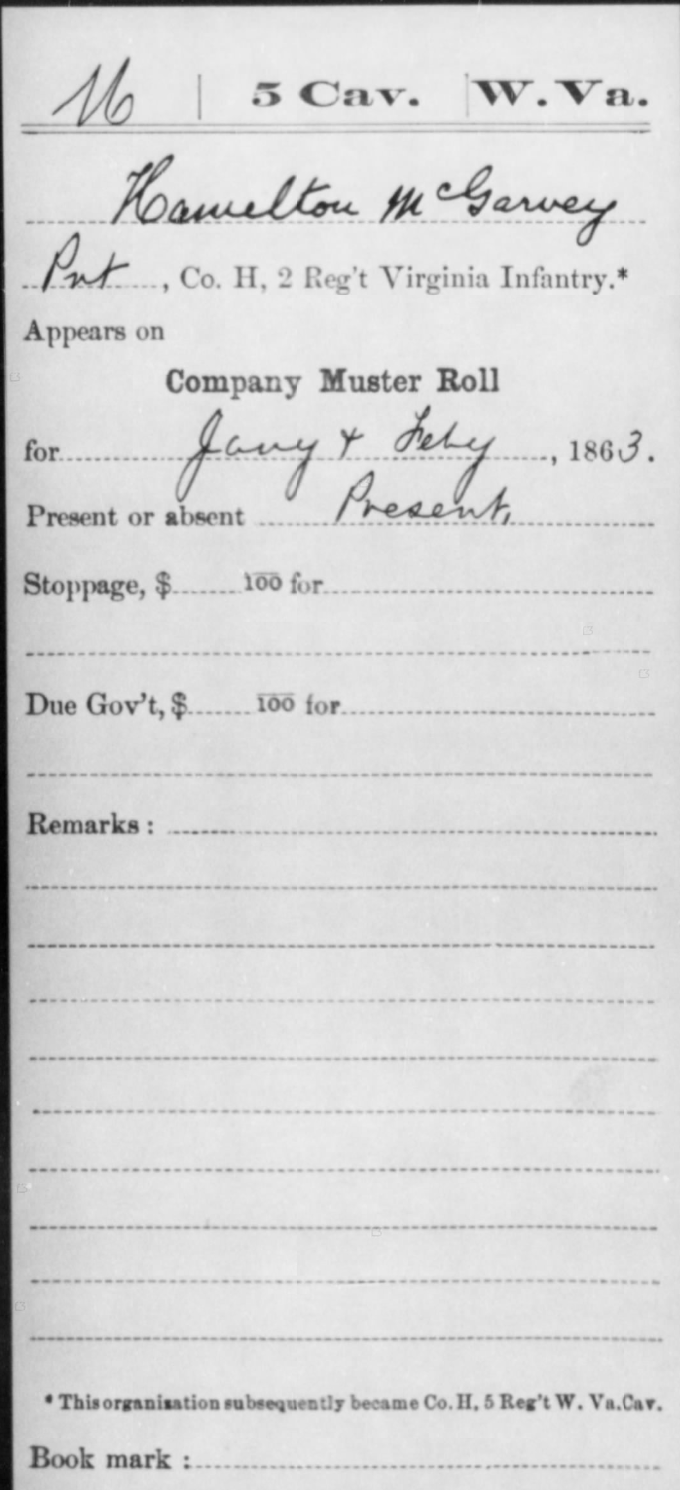 M | 5 Cav. | W. Va.
Hamelton McGarvey
Pvt, Co. H, 2 Reg't Virginia Infantry.*
Appears on
Company Muster Roll
for Jany & Feby, 1863.
Present or absent Present,
Stoppage, $ 100 for
Due Gov't, $ 100 for
Remarks:
* This organization subsequently became Co. H, 5 Reg't W. Va. Cav.
Book mark: